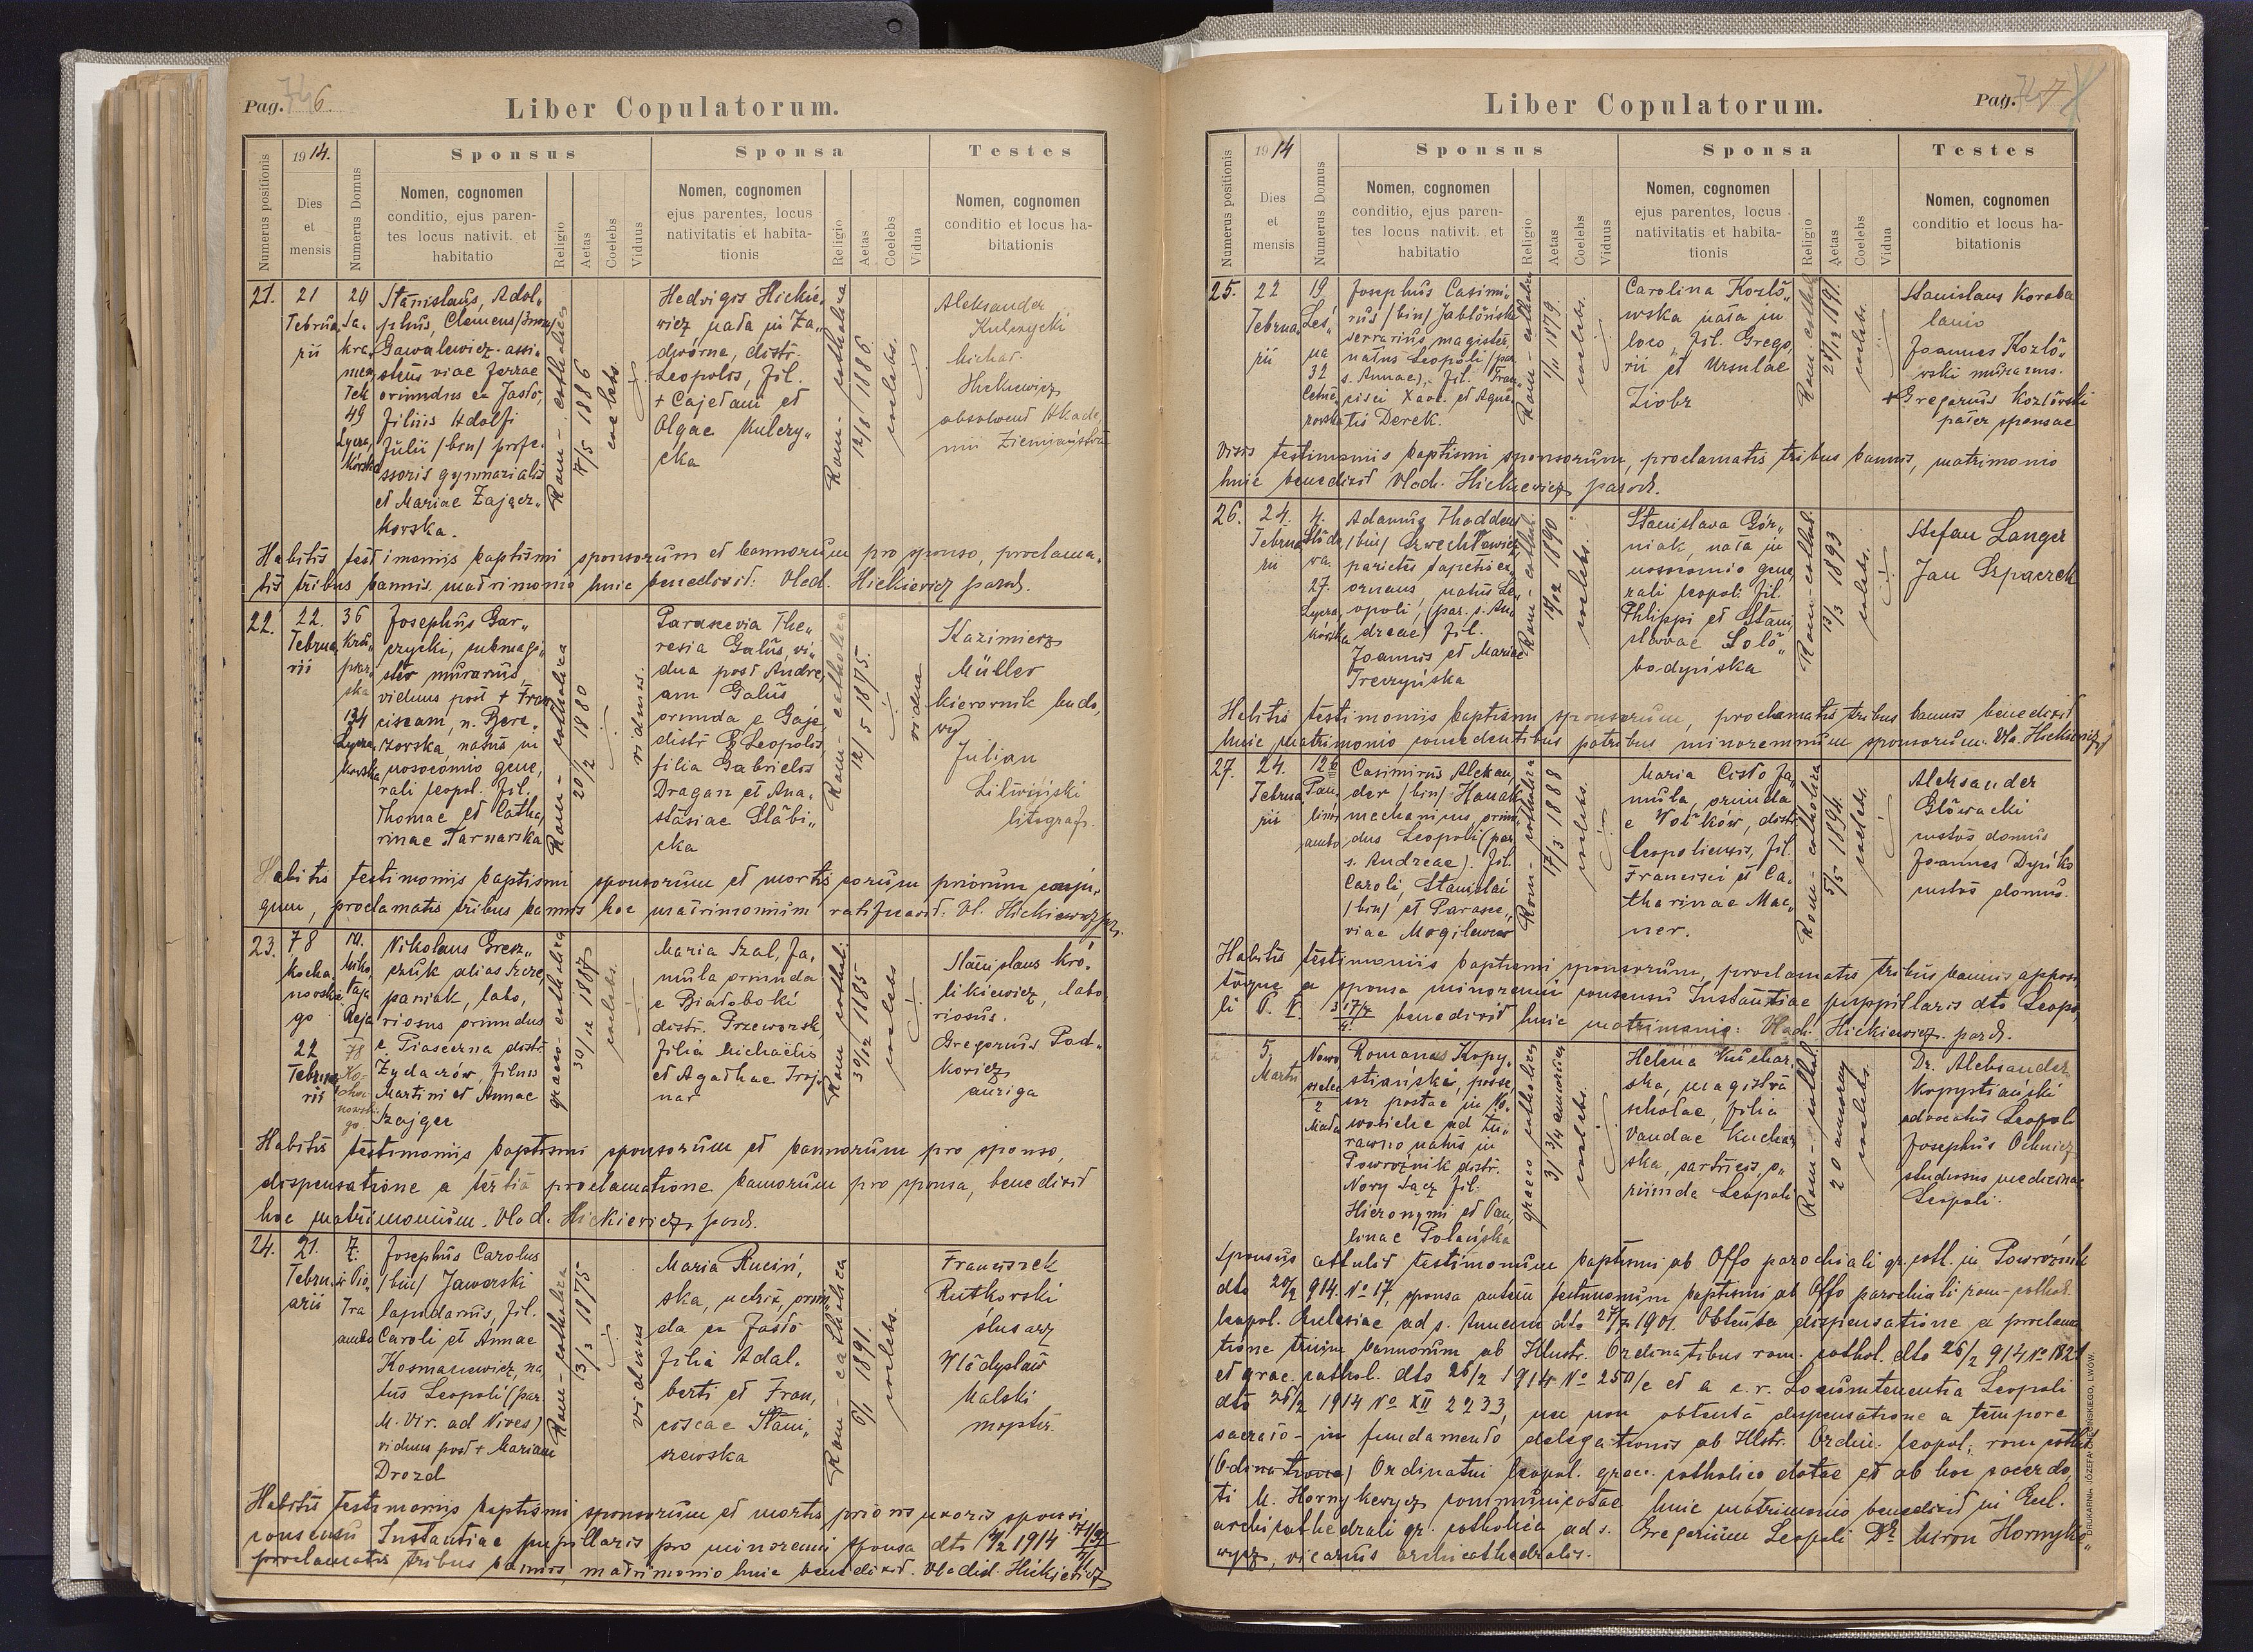 Pag. 6.
Liber Copulatorum.
Numerus positionis
1914.
Dies
et
mensis
Numerus Domus
Sponsus
Nomen, cognomen
conditio, ejus paren-
tes locus nativit. et
habitatio
Religio
Aetas
Coelebs
Viduus
Sponsa
Nomen, cognomen
ejus parentes, locus
nativitatis et habita-
tionis
Religio
Aetas
Coelebs
Vidua
Testes
Nomen, cognomen
conditio et locus ha-
bitationis
21.
21
Februa
rii
20
Sa.
kra
men
tek
49
Lycza,
kówska
Stanislaus, Adol„
phus, Clemens
Gawalewicz - assi„
stens viae ferrae
oriundus ex Jasło,
filius Adolfi
Julii /bin/ profe„
ssoris gymnasialis
et Mariae Zającz„
kowska.
Rom. - catholica
17/5 1886
coelebs.
Hedvigis Hickie„
wicz nata in Za„
dwórne, distr.
Leopolis, fil.
+ Cajetani et
Olgae Kulczy„
cka
Rom - catholica
12/8 1886.
coelebs.
Aleksander
Kulczycki
Michał
Hickiewicz
absolwent Akade„
mii Ziemiańskiej
Habitis testimoniis baptismi sponsorum et bannorum pro sponso, proclama„
tis tribus bannis, matrimonio huic benedixit: Vlad. Hickiewicz paroch.
22.
22.
Februa
rii
36
134
Lycza,
kowska
Josephus Gar„
czycki, submagi„
ster murarius,
viduus post + Fran
ciscam, n. Bere„
zowska, natus in
nosocomio gene,
rali Leopol. fil.
Thomae et Catha,
rinae Tarnarska
Rom - catholica
20/2 1880
viduus.
Parascevia The„
resia Galus, vi„
dua post Andre,
am Galus
oriunda e Gaje
distr. Leopolis
filia Gabrielis
Dragan et Ana„
stasiae Słabi„
cka
Rom - catholica
12/5 1875.
vidua
Kazimierz
Müller
kierownik budo,
wy
Julian
Litwiński
litograf.
Habitis testimoniis baptismi sponsorum et mortis eorum priorum conju„
gum, proclamatis tribus bannis hoc matrimonium ratificavit: Vl. Hickiewicz par.
23.
78
Kocha
nowskie
go
22
Februa
rii
14.
Miko
łaja
Reja
78
Ko„
cha
nowskie
go.
Nikolaus Gresz„
czuk alias Szcze,
paniak, labo,
riosus oriundus
e Piaseczna distr.
Żydaczów, filius
Martini et Annae
Szajgec
graeco - catholica
30/12 1887
coelebs.
Maria Szal, fa„
mula oriunda
e Białoboki
distr. Przeworsk
filia Michaëlis
et Agathae Troj„
nar
Rom cathol.
30/12 1885
coelebs
Stanislaus Kró„
likiewicz, labo
riosus.
Gregorius Pad„
kowicz
auriga
Habitis testimoniis baptismi sponsorum et bannorum pro sponso,
dispensatione a tertia proclamatione bannorum pro sponsa, benedixit
hoc matrimonium. Vlad. Hickiewicz, paroch.
24.
21.
Febru.
arii
7.
Pio„
tra
Josephus Carolus
/bin/ Jaworski
lapidarius, fil.
Caroli et Annae
Kosmanewicz, na„
tus Leopoli (par.
M. Vir. ad Nives)
viduus post + Mariam
Drozd
Rom - catholica
13/3 1875
viduus
Maria Rusiń,
ska, netrix, oriun
da ex Jasło
filia Adal„
berti et Fran,
ciscae Stani„
szewska
Rom - catholica
6/1 1891.
coelebs.
Franciszek
Rutkowski
ślusarz
Władysław
Malski
Habitis testimoniis baptismi sponsorum et mortis prioris uxoris sponsi
consensu Instantiae pupillaris pro minorenni sponsa dto 1914
proclamatis tribus bannis, matrimonio huic benedixit. Vladid. Hickiewicz
Pag. 7
Liber Copulatorum.
Numerus positionis
1914
Dies
et
mensis
Numerus Domus
Sponsus
Nomen, cognomen
conditio, ejus paren-
tes locus nativit. et
habitatio
Religio
Aetas
Coelebs
Viduus
Sponsa
Nomen, cognomen
ejus parentes, locus
nativitatis et habita-
tionis
Religio
Aetas
Coelebs
Vidua
Testes
Nomen, cognomen
conditio et locus ha-
bitationis
25.
22
Februa
rii
19
Leś„
na
32
Josephus Casimi„
rus /bin/ Jabłoński
serrarius magister,
natus Leopoli (par
s. Annae), fil. Fran„
cisci Xav. et Agne„
tis Derek.
Rom - catholica
1/11 1879.
coelebs.
Carolina Kozło„
wska nata in
loco, fil. Grego,
rii et Ursulae
Ziobr
Rom. cathol.
28/12 1891.
coelebs.
Stanislaus Koraba
lanio
Joannes Kozło„
wski murarius.
+ Gregorius Kozłowski
pater sponsae
Visis testimoniis baptismi sponsorum, proclamatis tribus bannis, matrimonio
huic benedixit Vlad. Hickiewicz, paroch.
26.
24.
Februa
rii
4.
Słodo
wa.
27.
Lycza,
kówska
Adamus Thaddeus
/bin/
parietis tapetiex
ornans, natus Le„
opoli, (par. s. An
dreae) fil.
Joannis et Mariae
Treczyńska
Rom - cathol.
1890
coelebs.
Stanislava Gór„
niak, nata in
nosocomio gene,
rali Leopoli fil.
Philippi et Stani,
slavae Soło„
bodyńska
Rom - cathol.
13/3 1893
coelebs.
Stefan Langer
Jan Szpaczek
Habitis testimoniis baptismi sponsorum, proclamatis tribus bannis benedixit
huic matrimonio concedentibus patribus minorennium sponsorum. Vla. Hickiewicz
27.
24.
Februa
rii
12
Pau„
linów
Casimirus Aleksan
der /bin/ Hanak
mechanicus, oriun
dus Leopoli (par
s. Andreae). fil.
Caroli, Stanislai
/bin/ et Parasce„
viae Mogilewicz
Rom - catholica
17/3 1888
coelebs.
Maria Cisło fa„
mula, oriunda
e Wołków, distr.
Leopoliensis, fil.
Francisci et Ca„
tharinae Mac„
ner.
Rom - catholica
5/5 1894.
coelebs.
Aleksander
Głowacki
custos domus
Joannes Dyńko
custos domus.
Habitis testimoniis baptismi sponsorum, proclamatis tribus bannis apposi
toque a sponsa minorenni consensu Instantiae puppillaris dto Leopo
li benedixit huic matrimonio: Vlad. Hickiewicz. paroch.
5
Martii
Nowo
sielce
2
Mada
Romanus Kopy„
stiański, posse,
sor postae in No„
wosielce ad Żu„
rawno natus in
Powroźnik distr.
Nowy Sącz fil.
Hieronymi et Pau„
linae Polańska
graeco catholica
31 3/4 annorum
coelebs.
Helena Kuchar,
ska, magistra
scholae, filia
Vandae Kuchar
ska, sartricis, o„
riunda Leopoli
Rom - cathol.
20 annorum
coelebs.
Dr. Aleksander
Kopystiański
advocatus Leopoli
Josephus
studiosus medicinae
Leopoli.
Sponsus attulit testimonium baptismi ab Offo parochiali gr. cath. in Powroźnik
dto 20/2 914. No 17, sponsa autem testimonium baptismi ab Offo parochiali rom - cathol.
Leopol. Eclesiae ad s. Annam dto 27/7 1901. Obtenta dispensatione a proclama
tione trium bannorum ab Illustr. Ordinatibus rom. cathol. dto 26/2 914 No 1821
et grae. cathol. dto 26/2 1914 No 250/c et a c. r. Locumtenentia Leopoli
dto 26/2 1914 No XII 2233, nec non obtenta dispensatione a tempore
sacrato - in fundamento delegationis ab Illstr. Ordin. Leopol. rom cathol
Ordinatui Leopol. graec. catholico datae et ab hoc sacerdo,
ti M. Hornykewycz communicatae huic matrimonio benedixit in Eccl.
archicathedrali gr. catholica ad s. Gregorium Leopoli Dr. Miron Hornyke„
wycz, vicarius archicathedralis.
DRUKARNIA JÓZEFA CHĘCIŃSKIEGO, LWÓW.